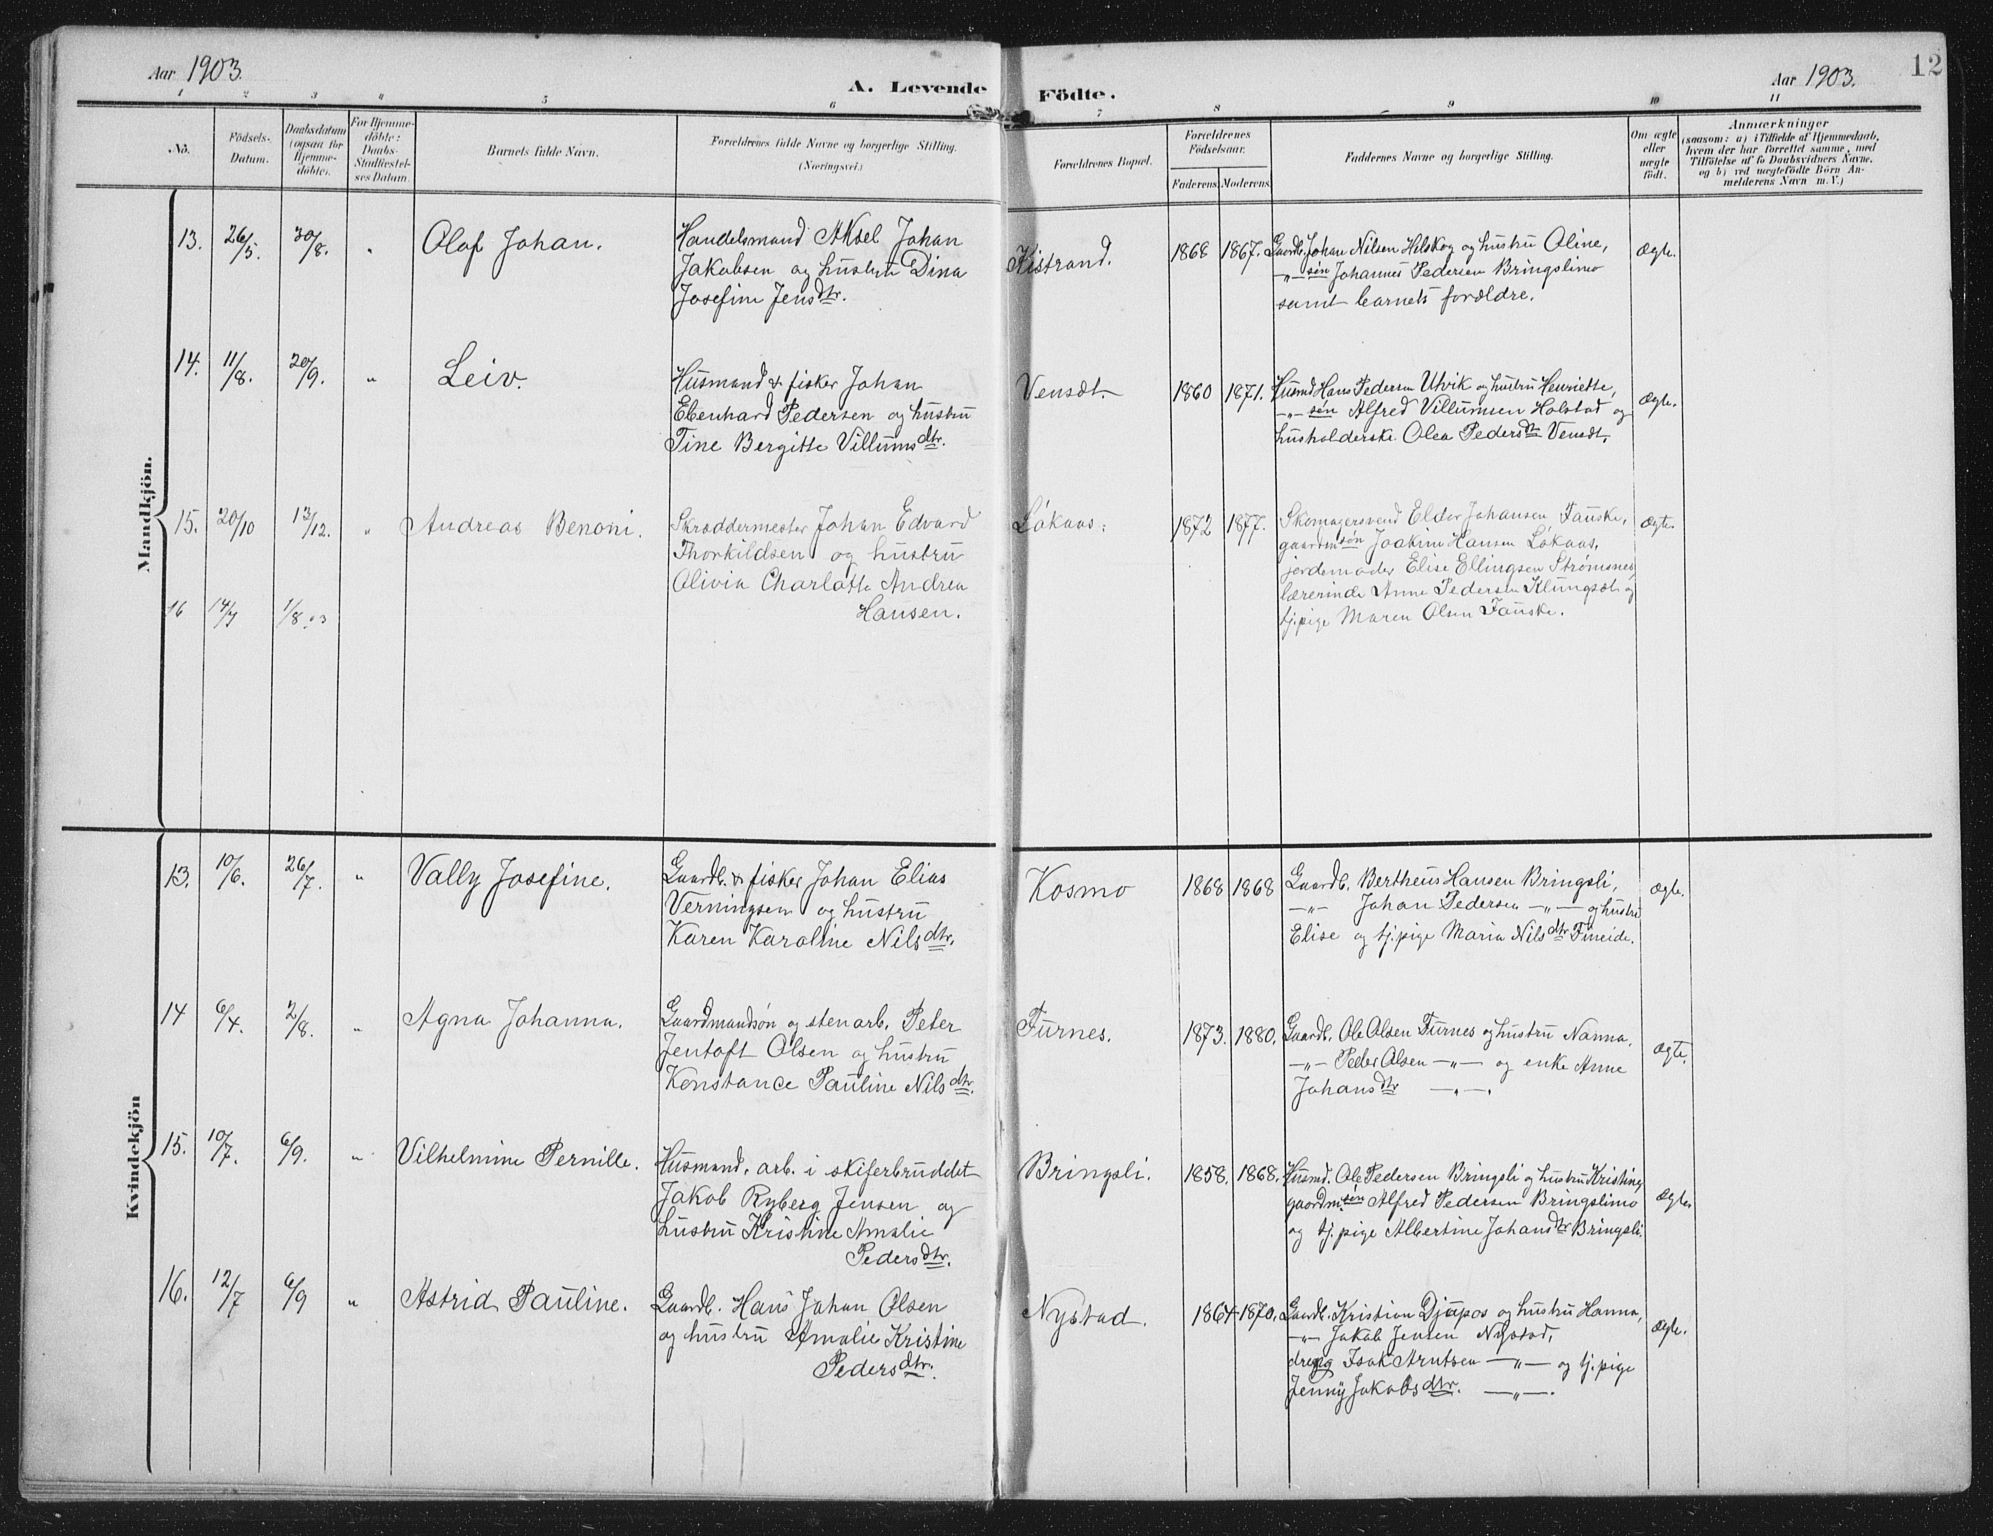 Aar 1903.
A. Levende
Födte.
Aar 1903.
12
1 2 3 " 5 6 7 8 9 10 11
No.
Födsels-Datum.
Daabsdatum (ogsaa for Hjemme-döbte).
For Hjemme-döbte: Daabs-Stadfæstel-ses Datum.
Barnets fulde Navn.
Forældrenes fulde Navne og borgerlige Stilling.
(Næringsvei.)
Forældrenes Bopæl.
Forældrenes Födselsaar.
Faderens. Moderens.
Faddernes Navne og borgerlige Stilling.
Om ægte eller uægte födt.
Anmærkninger
(saasom: a) i Tilfælde af Hjemmedaab, hvem der har forrettet samme, med Tilföielse af to Daabsvidners Navne, og b) ved uægtefödte Börn An-melderens Navn m. V.)
Mandkjön.
13. 26/5. 30/8. " Olaf Johan. Handelsmand Aksel Johan
Jakobsen og hustru Dina
Josefine Jensdtr.
Kistrand. 1868 1867. Gaardb. Johan Nilsen Helskog og hustru Oline,
-"- søn Johannes Pedersen Bringslimo
samt barnets forældre.
Ægte.
14. 11/8. 20/9. " Leiv. Husmand & fisker Johan
Ebenhard Pedersen og hustru
Tine Bergitte Villumsdtr.
Vensæt. 1860 1871. Husmd Hans Pedersen Utvik og hustru Henriette,
-"- søn Alfred Villumsen Holstad og
husholderske Olea Pedersdt Vensæt.
Ægte.
15. 20/10 13/12. " Andreas Benoni. Skræddermester Johan Edvard
Thorkildsen og hustru
Olivia Charlotte Andrea
Hansen.
Løkaas. 1872 1877. Skomagersvend Eldor Johansen Fauske,
gaardmsøn Joakim Hansen Løkaas,
jordemoder Elise Ellingsen Strømsnes,
lærerinde Anne Pedersen Klungsæt og
tj.pige Maren Olsen Fauske.
Ægte.
16 14/7 1/8 03
Kvindekjön
13. 10/6. 26/7. " Vally Josefine. Gaardb. & fisker Johan Elias
Verningsen og hustru
Karen Karoline Nilsdtr.
Kosmo 1868 1868 Gaardb. Bertheus Hansen Bringsli,
-"- Johan Pedersen -"- og hustru
Elise og tj.pige Maria Nilsdtr Fineide.
Ægte.
14 6/4. 2/8. " Agna Johanna. Gaardmandsøn og stenarb. Peter
Jentoft Olsen og hustru
Konstance Pauline Nilsdtr.
Furnes. 1873. 1880. Gaardb. Ole Olsen Furnes og hustru Nanna,
-"- Peder Olsen -"- og enke Anne
Johansdtr -"-.
Ægte.
15. 10/7. 6/9. " Vilhelmine Pernille. Husmand, arb. i skiferbruddet
Jakob Ryberg Jensen og
hustru Kristine Amalie
Pedersdtr.
Bringsli. 1858. 1868. Husmd. Ole Pedersen Bringsli og hustru Kristine,
gaardm.søn Alfred Pedersen Bringslimo
og tj.pige Albertine Johansdtr Bringsli.
Ægte.
16. 12/7 6/9 " Astrid Pauline. Gaardb. Hans Johan Olsen
og hustru Amalie Kristine
Pedersdtr.
Nystad. 1864 1870. Gaardb. Kristian Djupos og hustru Hanna,
-"- Jakob Jensen Nystad,
dreng Isak Arntsen -"- og tj.pige
Jenny Jakobsdtr. -"-.
Ægte.